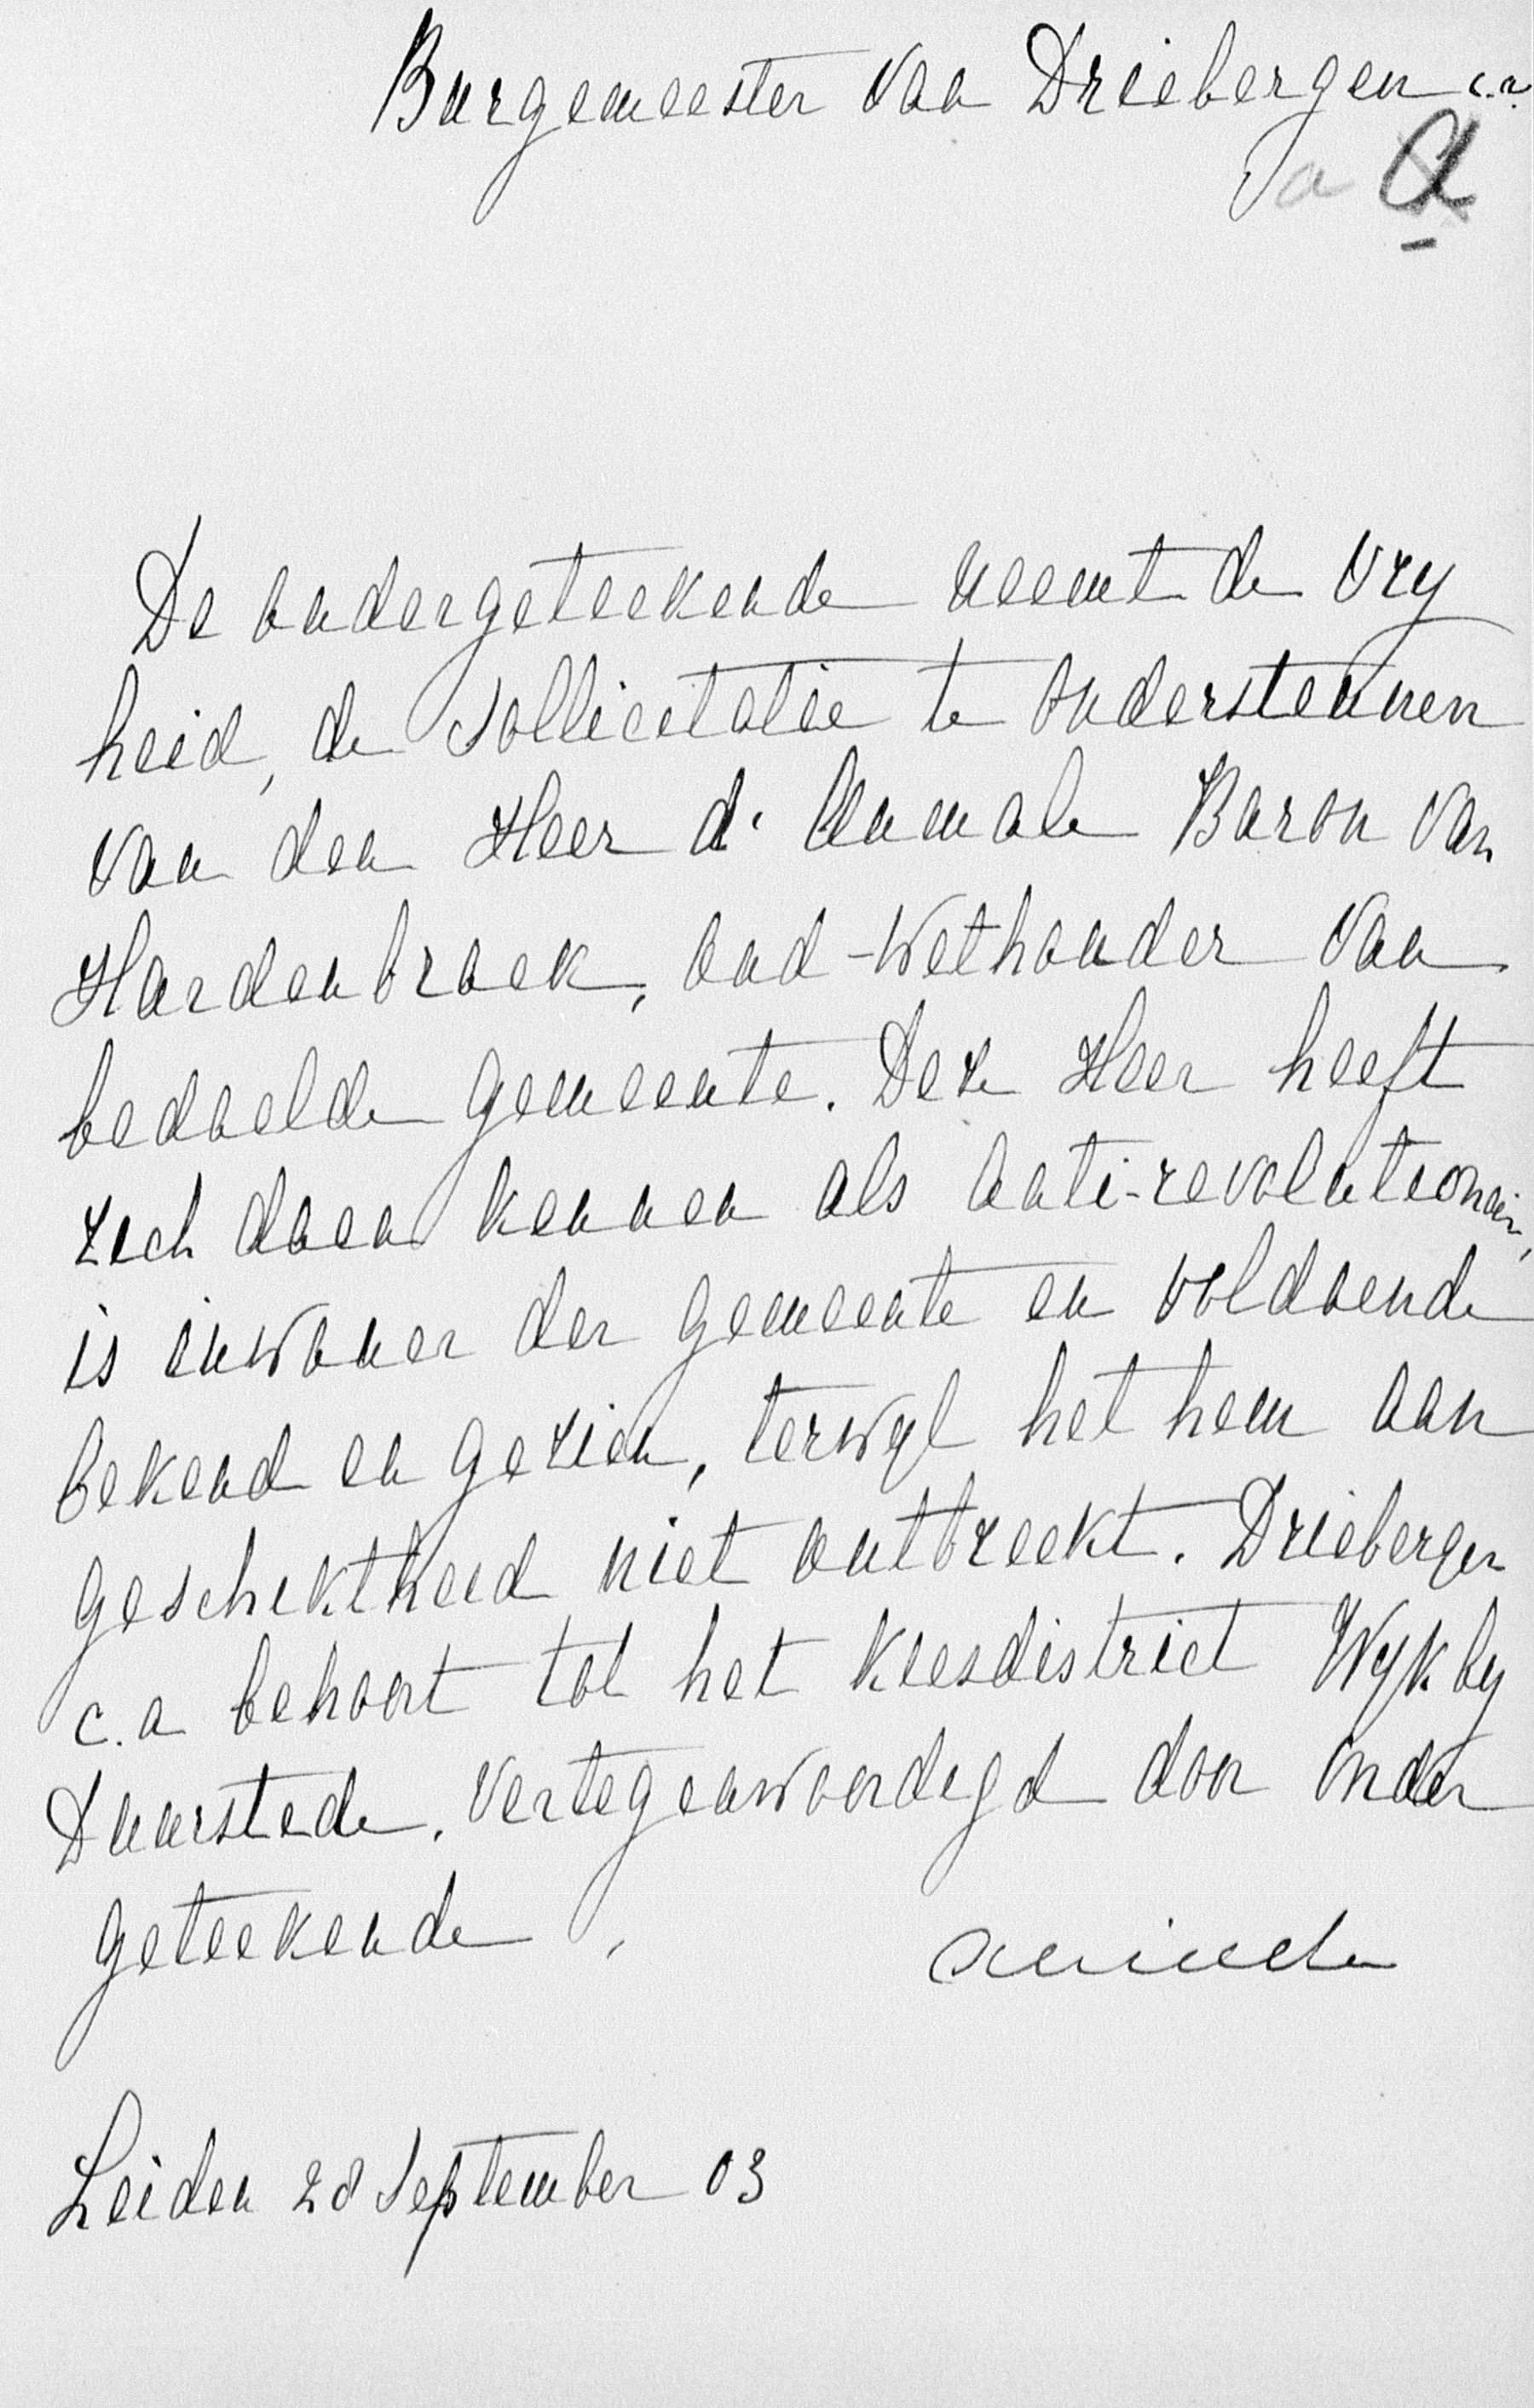 Burgemeester van Driebergen c.a.
De ondergeteekende neemt de vry
heid, de sollicitatie te ondersteunen
van den Heer d' Aumale Baron van
Hardenbroek, oud-wethouder van
bedoelde gemeente. Deze Heer heeft
zich doen kennen als anti-revolutionair,
is inwoner der gemeente en voldoende
bekend en gezien, terwyl het hem aan
geschiktheid niet ontbreekt. Driebergen
c.a behoort tot het kiesdistrict Wyk by
Duurstede, vertegenwoordigd door onder
geteekende,
Leiden 28 September 03